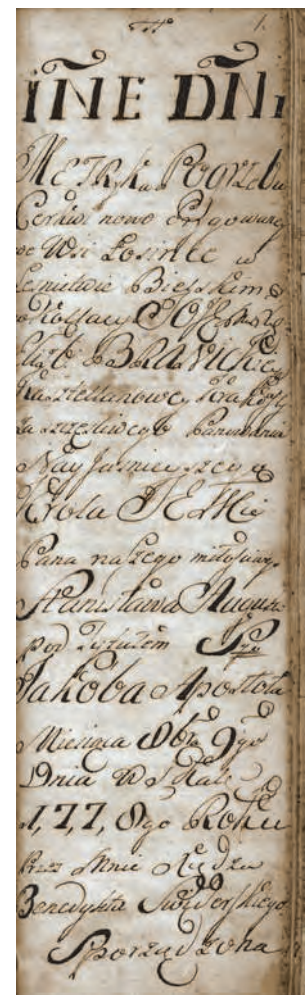 1.
IÑE DÑI
METRyka POgrzebu
Cerkwi nowo Erygowaney
we Wsi Łosince w
Leśnictwie Bielskim
BRANICKiey
Kasztellanowey Krakow
za szczęśliwego Panowania
Nayjaśnieyszego
Krola JEGo
Pana naszego miłościwego
Stanisława Augusta
pod Tytułem S
Jakoba Apostoła
Miesiąca 8bra 9go
Dnia W S Kalē
1,7,7,8go Roku
Przez Mnie Xiędza
Benedykta Świderskiego
Sporządzona